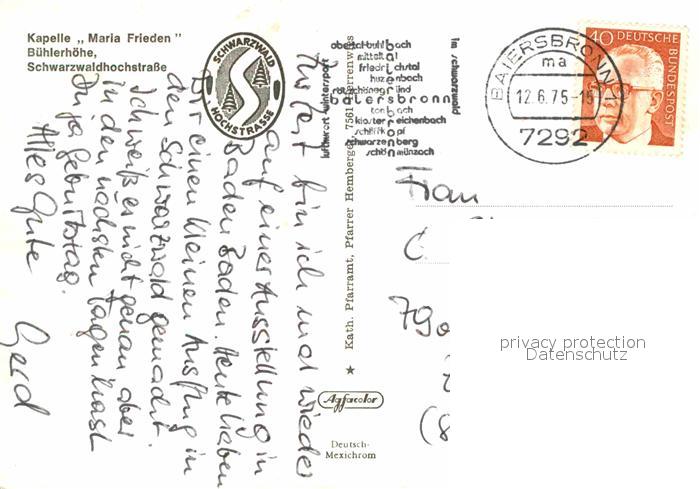 Kapelle „Maria Frieden"
Bühlerhöhe,
Schwarzwaldhochstraße
SCHWARZWALD
HOCHSTRASSE
Zur Zeit bin ich mal wieder
auf einer Ausstellung in
Baden Baden. Heute haben
wir einen kleinen Ausflug in
den Schwarzwald gemacht.
Ich weiß es nicht genau aber
in den nächsten Tagen hast
Du ja Geburtstag.
Alles Gute
Gerd
Kath. Pfarramt, Pfarrer Hemberger, 7561 Herrenwies
Agfacolor
Deutsch-
Mexichrom
luftkurort wintersport
obertal-buhlbach
mitteltal
friedrichstal
huzenbach
röt-schönegründ
baiersbronn
tonbach
klosterreichenbach
schliffkopf
schwarzenberg
schönmünzach
im schwarzwald
BAIERSBRONN 1
ma
12.6.75-18
7292
40 DEUTSCHE
BUNDESPOST
Frau
C
790
(8
privacy protection
Datenschutz